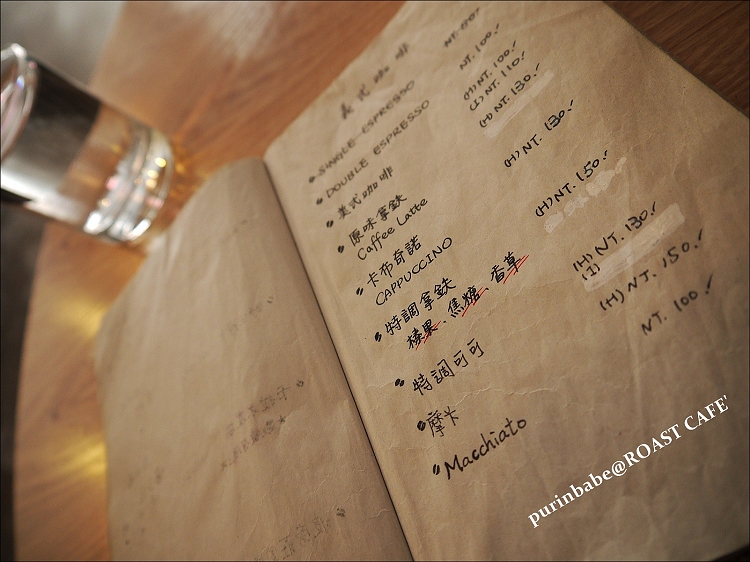 義式咖啡
SINGLE ESPRESSO NT.
DOUBLE ESPRESSO NT. 100.
美式咖啡 (H) NT. 100.
(I) NT. 110.
原味拿鉄 (H) NT. 130.
Caffee Latte
卡布奇諾 (H) NT. 130.
CAPPUCCINO
特調拿鉄 (H) NT. 150.
榛果、焦糖、香草
特調可可 (H) NT. 130.
(I)
摩卡 (H) NT. 150.
Macchiato NT. 100.
purinbabe@ROAST CAFE'